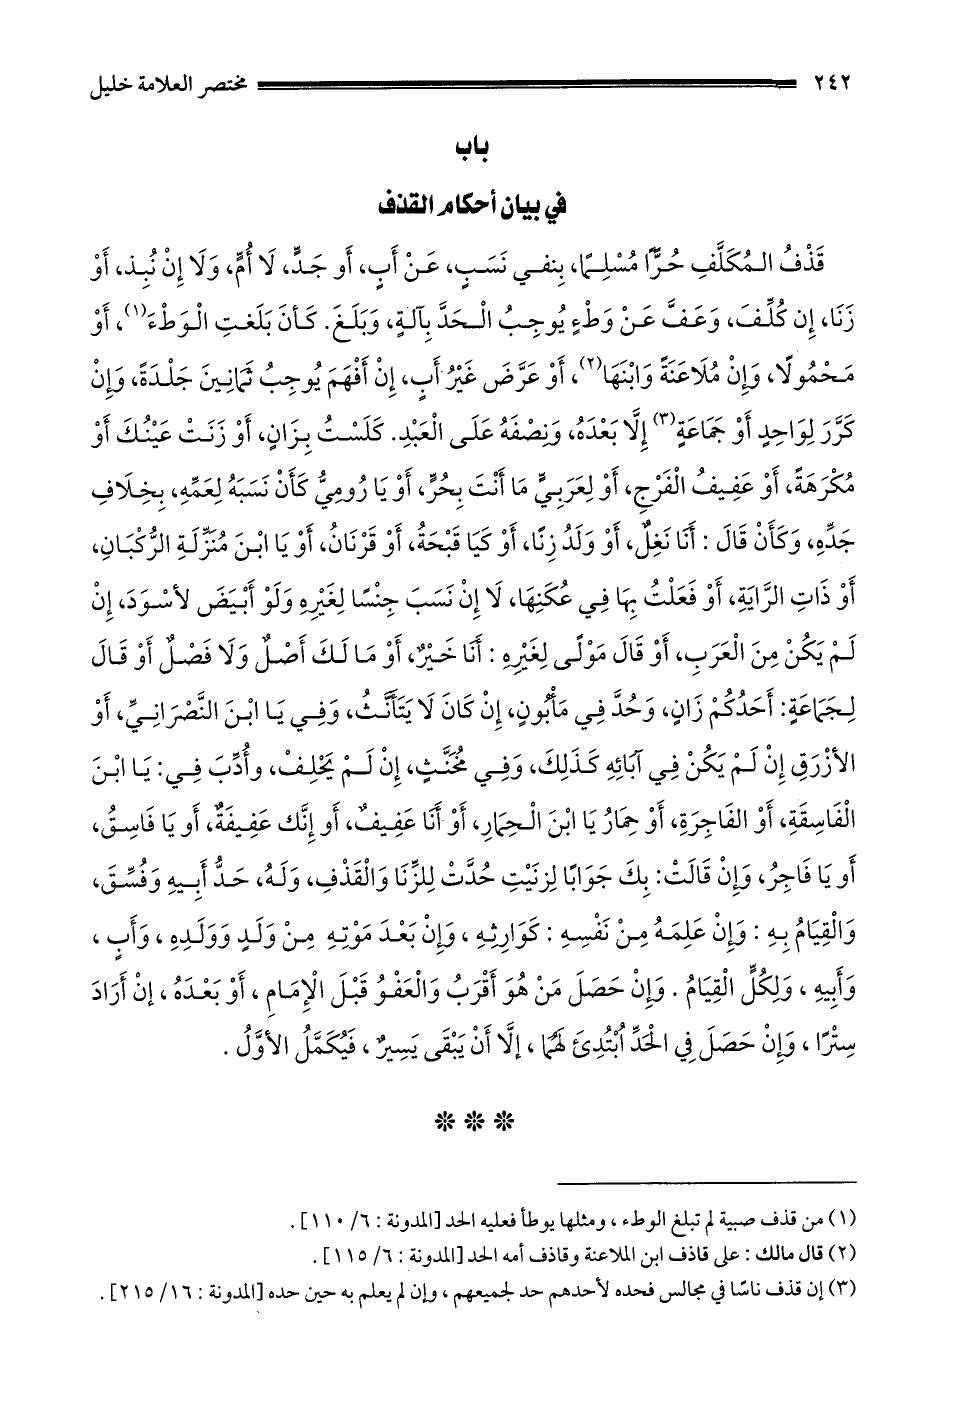 ٢٤٢ مختصر العلامة خليل
باب
في بيان أحكام القذف
قَذْفُ الـمُكَلَّفِ حُرًّا مُسْلِمًا، بِنفـي نَسَبٍ، عَـنْ أَبٍ، أَو جَـدٍّ، لَا أُمٍّ، وَلَا إِنْ نُبِـذ، أَوْ
زَنَا، إِن كُلِّـفَ، وَعَـفَّ عَـنْ وَطْءٍ يُوجِـبُ الْـحَدَّ بِآلةٍ، وَبَلَغَ. كَأَن بَلَغَتِ الْوَطْءَ(١)، أَوْ
مَـحْمُولًا، وَإِنْ مُلَاعَنَةً وَابْنَهَا(٢)، أَوْ عَرَّضَ غَيْرُ أَبٍ، إِنْ أَفْهَمَ يُوجِبُ ثَمَانِينَ جَلْدَةً، وَإِنْ
كَرَّرَ لِوَاحِدٍ أَوْ جَمَاعَةٍ(٣) إِلَّا بَعْدَهُ، وَنِصْفَهُ عَلَـى الْعَبْدِ. كَلَسْتُ بِـزَانٍ، أَوْ زَنَـتْ عَيْنُـكَ أَوْ
مُكْرَهَةً، أَوْ عَفِيفُ الْفَرْجِ، أَوْ لِعَرَبِيٍّ مَا أَنْتَ بِحُرٍّ، أَوْ يَا رُومِيُّ كَأَنْ نَسَبَهُ لِعَمِّهِ، بِخِلَافِ
جَدِّهِ، وَكَأَنْ قَالَ : أَنَا نَغِلٌ، أَوْ وَلَدُ زِنًا، أَوْ كَيَا قَبْحَةُ، أَوْ قَرْنَانُ، أَوْ يَا ابْـنَ مُنَزِّلَـةِ الرُّكْبَانِ،
أَوْ ذَاتِ الرَّايَةِ، أَوْ فَعَلْتُ بِهَا فِـي عُكَنِهَا، لَا إِنْ نَسَبَ جِنْسًا لِغَيْرِهِ وَلَوْ أَبْيَضَ لأَسْوَدَ، إِنْ
لَـمْ يَكُنْ مِنَ الْعَرَبِ، أَوْ قَالَ مَوْلًـى لِغَيْرِهِ : أَنَا خَيْرٌ، أَوْ مَا لَـكَ أَصْلٌ وَلَا فَصْلٌ أَوْ قَالَ
لِـجَمَاعَةٍ: أَحَدُكُمْ زَانٍ، وَحُدَّ فِـي مَأْبُونٍ، إِنْ كَانَ لَا يَتَأَنَّـثُ، وَفِـي يَـا ابْنَ النَّصْرَانِـيِّ، أَوْ
الأَزْرَقِ إِنْ لَـمْ يَكُنْ فِـي آبَائِهِ كَـذَلِكَ، وَفِـي مُخَنَّثٍ، إِنْ لَـمْ يَحْلِـفْ، وأُدِّبَ فِـي: يَـا ابْـنَ
الْفَاسِقَةِ، أَوْ الفَاجِرَةِ، أَوْ حِمَارُ يَا ابْنَ الْـحِمَارِ، أَوْ أَنَا عَفِيفٌ، أَو إِنَّك عَفِيفَةٌ، أَو يَا فَاسِقُ،
أَو يَا فَاجِرُ، وَإِنْ قَالَتْ: بِكَ جَوَابًا لِزَنَيْتِ حُدَّتْ لِلزِّنَا وَالْقَذْفِ، وَلَهُ، حَـدُّ أَبِـيهِ وَفُسِّقَ،
وَالْقِيَامُ بِهِ : وَإِنْ عَلِمَـهُ مِـنْ نَفْسِهِ : كَوَارِثِهِ ، وَإِنْ بَعْدَ مَوْتِهِ مِـنْ وَلَدٍ وَوَلَـدِهِ ، وَأَبٍ ،
وَأَبِيهِ ، وَلِكُلٍّ الْقِيَامُ . وَإِنْ حَصَلَ مَنْ هُوَ أَقْرَبُ وَالْعَفْوُ قَبْلَ الْإِمَامِ ، أَوْ بَعْدَهُ ، إِنْ أَرَادَ
سِتْرًا ، وَإِنْ حَصَلَ فِي الْحَدِّ ابْتُدِئَ لَهُمَا ، إِلَّا أَنْ يَبْقَى يَسِيرٌ ، فَيُكَمَّلُ الأَوَّلُ .
(١) من قذف صبية لم تبلغ الوطء ، ومثلها يوطأ فعليه الحد [المدونة : ٦/ ١١٠] .
(٢) قال مالك : على قاذف ابن الملاعنة وقاذف أمه الحد [المدونة : ٦/ ١١٥] .
(٣) إن قذف ناسًا في مجالس فحده لأحدهم حد لجميعهم ، وإن لم يعلم به حين حده [المدونة : ١٦/ ٢١٥] .